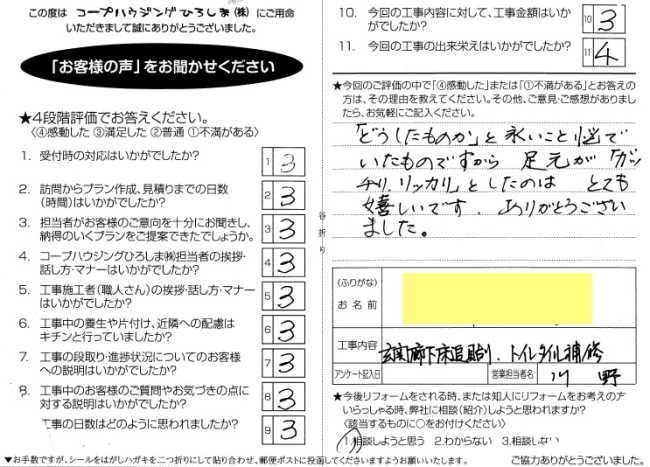 この度は コープハウジングひろしま(株) にご用命
いただきまして誠にありがとうございました。
「お客様の声」をお聞かせください
★4段階評価でお答えください。
〈④感動した ③満足した ②普通 ①不満がある〉
1. 受付時の対応はいかがでしたか?
1 3
2. 訪問からプラン作成、見積りまでの日数
(時間)はいかがでしたか?
2 3
3. 担当者がお客様のご意向を十分にお聞きし、
納得のいくプランをご提案できたでしょうか。
3 3
4. コープハウジングひろしま㈱担当者の挨拶・
話し方・マナーはいかがでしたか?
4 3
5. 工事施工者(職人さん)の挨拶・話し方・マナー
はいかがでしたか?
5 3
6. 工事中の養生や片付け、近隣への配慮は
キチンと行っていましたか?
6 3
7. 工事の段取り・進捗状況についてのお客様
への説明はいかがでしたか?
7 3
8. 工事中のお客様のご質問やお気づきの点に
対する説明はいかがでしたか?
8 3
工事の日数はどのように思われましたか?
9 3
▼お手数ですが、シールをはがしハガキを二つ折りにして貼り合わせ、郵便ポストに投函してくださいますようお願いいたします。
谷折り
10. 今回の工事内容に対して、工事金額はいか
がでしたか?
10 3
11. 今回の工事の出来栄えはいかがでしたか?
11 4
★今回のご評価の中で「④感動した」または「①不満がある」とお答えの
方は、その理由を教えてください。その他、ご意見・ご感想がありました
ら、お気軽にご記入ください。
「どうしたものか」と永いこと悩んで
いたものですから 足元が「ガッ
チリ、リッカリ」としたのは とても
嬉しいです。ありがとうござい
ました。
(ふりがな)
お名前
工事内容
玄関廊下床追貼り、トイレタイル補修
アンケート記入日
営業担当者名
川野
★今後リフォームをされる時、または知人にリフォームをお考えの方
いらっしゃる時、弊社に相談(紹介)しようと思われますか?
〈該当するものに○をお付けください〉
1.相談しようと思う 2.わからない 3.相談しない
ご協力ありがとうございました。